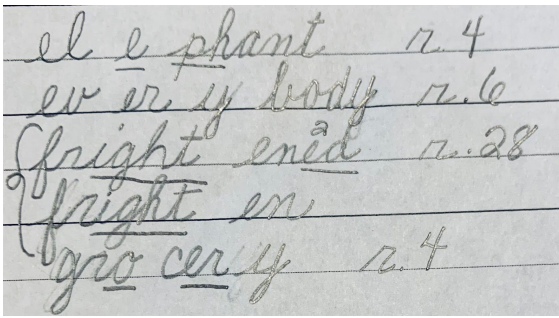 el e phant r. 4
ev er y body r. 6
fright ened² r. 28
fright en
gro cer y r. 4